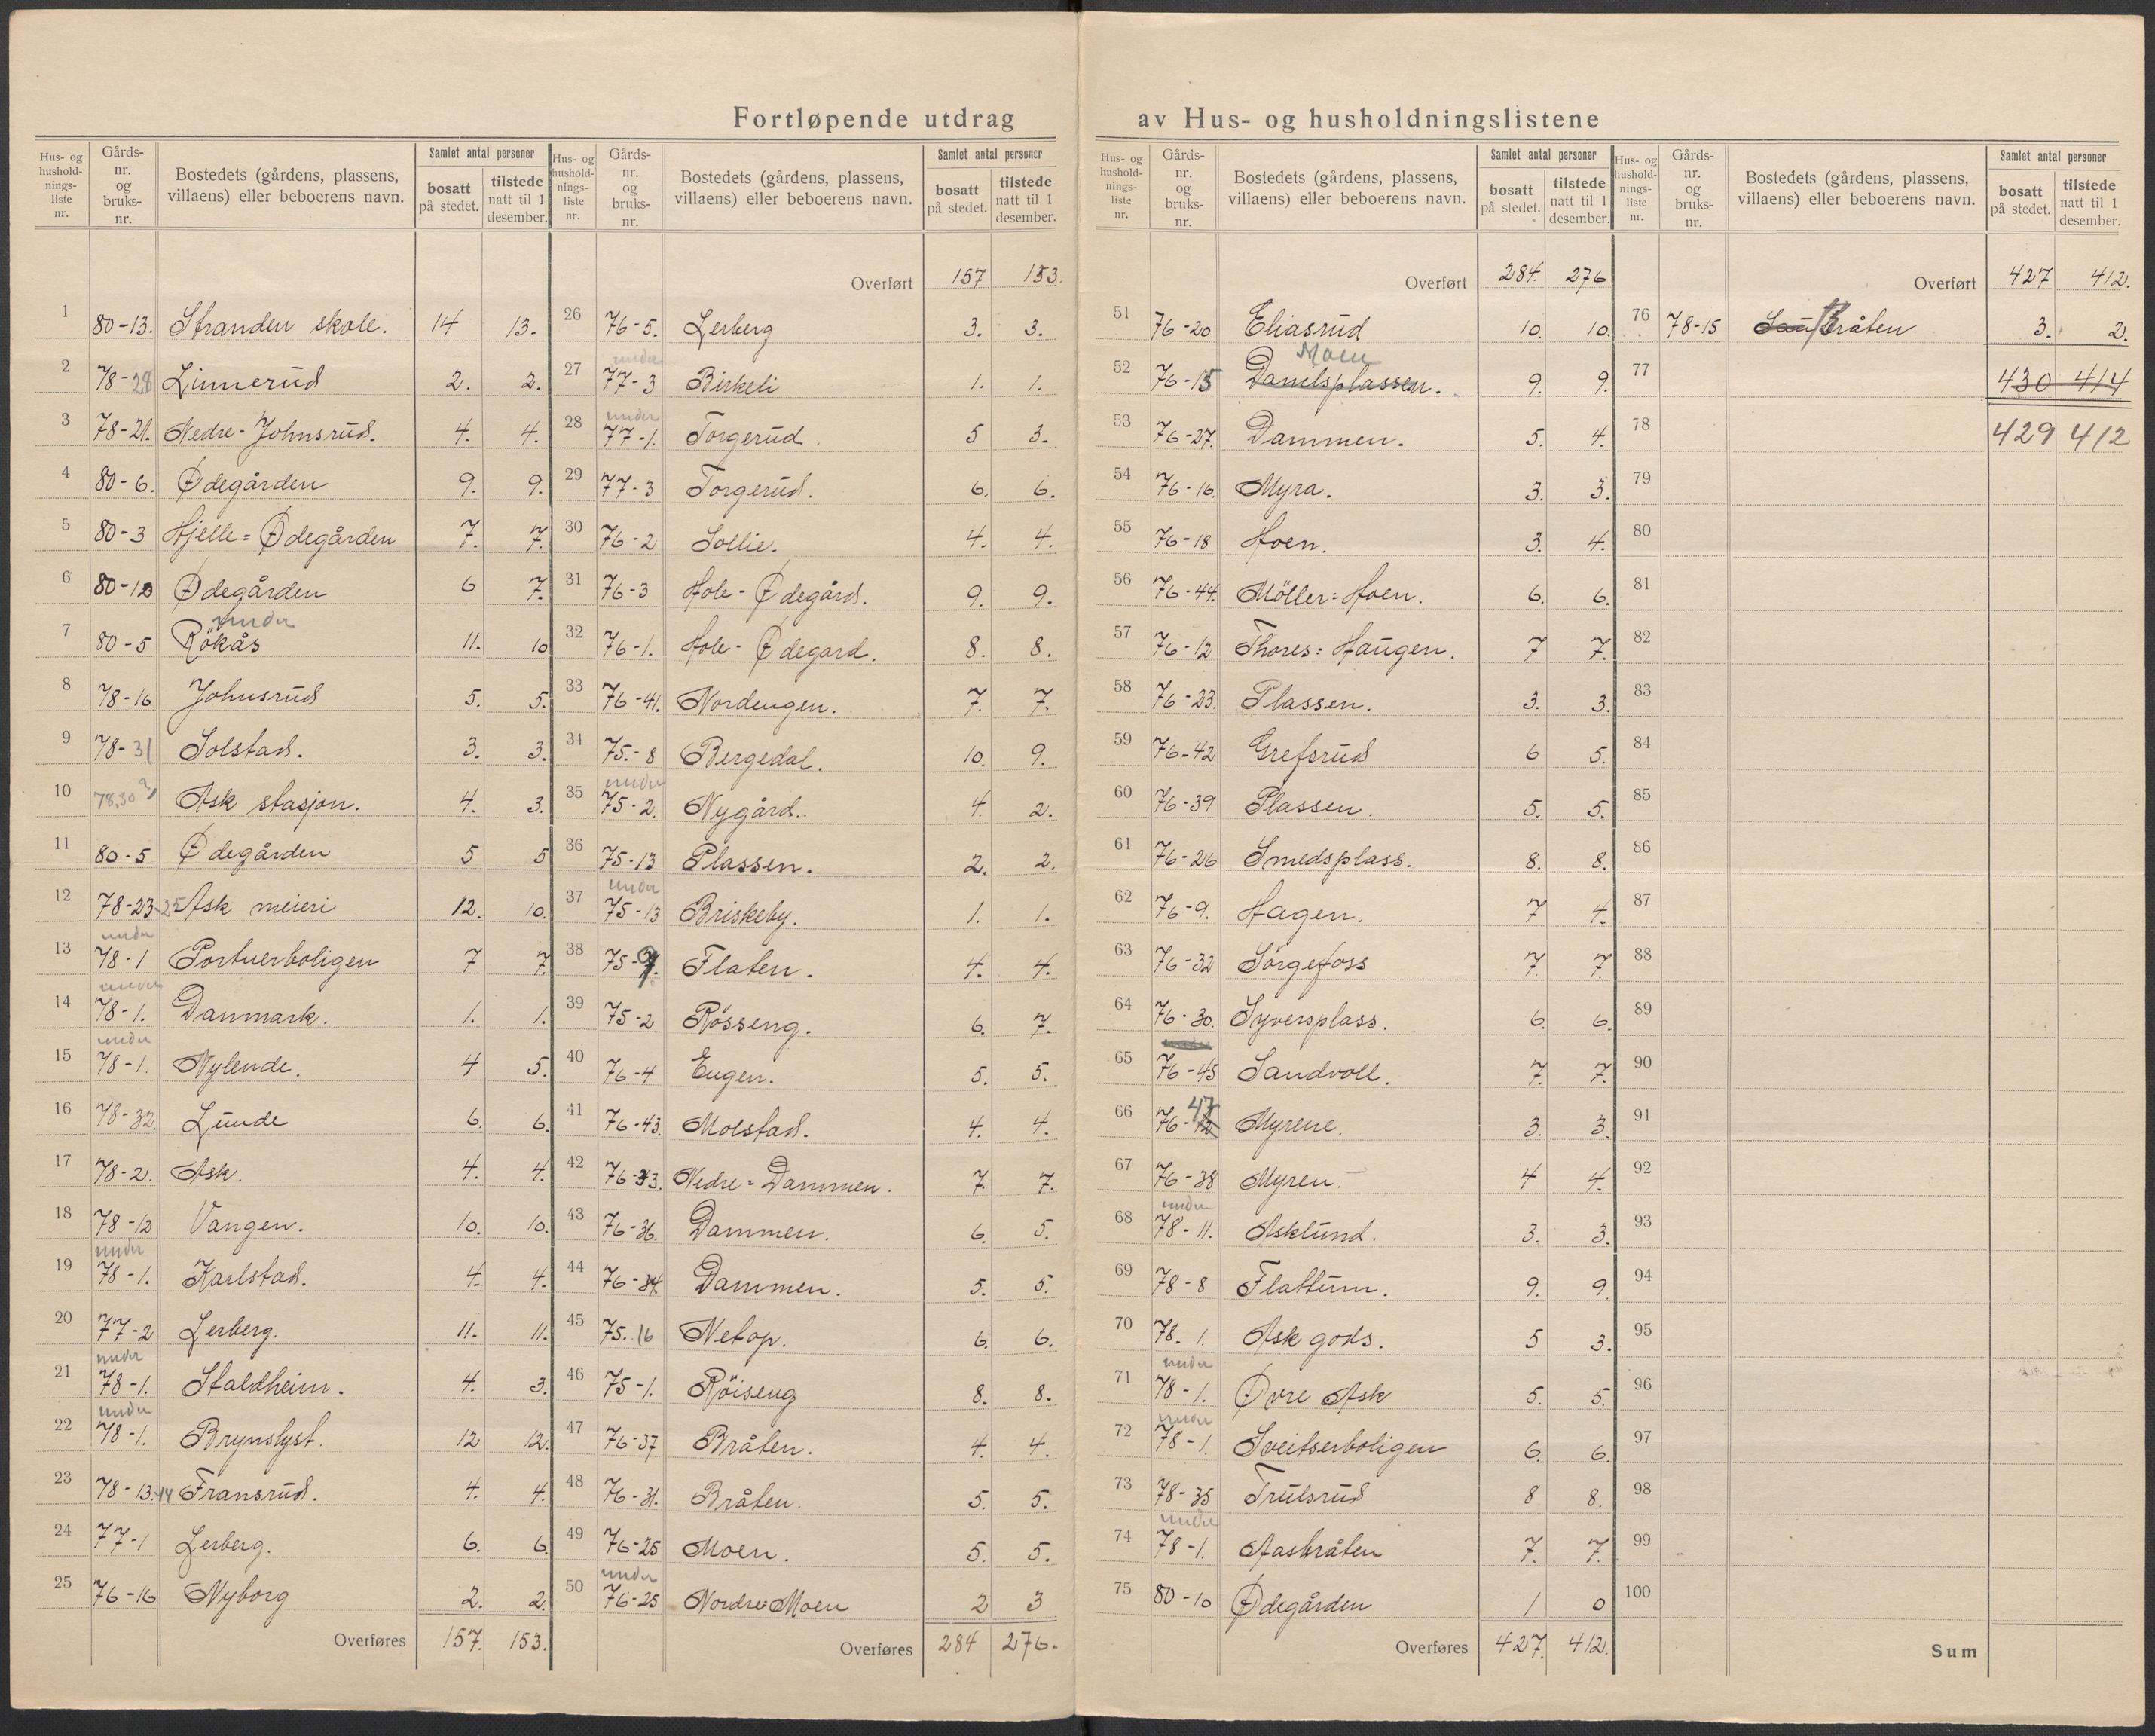 Fortløpende utdrag av Hus- og husholdningslistene
Hus- og hushold-nings-liste nr. Gårds-nr. og bruks-nr. Bostedets (gårdens, plassens, villaens) eller beboerens navn. Samlet antal personer bosatt på stedet. tilstede natt til 1 desember.
1 80-13. Stranden skole. 14 13.
2 78-28 Linnerud 2. 2.
3 78-21. Nedre-Johnsrud. 4. 4.
4 80-6. Ødegården 9. 9.
5 80-3 Hjelle=Ødegården 7. 7.
6 80-10 Ødegården 6 7.
7 80-5 Rökås under 11. 10
8 78-16 Johnsrud 5. 5.
9 78-31 Solstad. 3. 3.
10 78,30? Ask stasjon. 4. 3.
11 80-5 Ødegården 5 5
12 78-23-25 Ask meieri 12. 10.
13 under 78-1 Portnerboligen 7 7.
14 under 78-1. Danmark. 1. 1.
15 under 78-1. Nylende. 4 5.
16 78-32. Lunde 6. 6.
17 78-2. Ask. 4. 4.
18 78-12 Vangen. 10. 10.
19 under 78-1. Karlstad. 4. 4.
20 77-2 Lerberg. 11. 11.
21 under 78-1. Staldheim. 4. 3.
22 under 78-1. Brynslyst. 12 12.
23 78-13.14 Fransrud. 4. 4.
24 77-1 Lerberg. 6. 6.
25 76-16 Nyborg 2. 2.
Overføres 157. 153.
Hus- og hushold-nings-liste nr. Gårds-nr. og bruks-nr. Bostedets (gårdens, plassens, villaens) eller beboerens navn. Samlet antal personer bosatt på stedet. tilstede natt til 1 desember.
Overført 157 153.
26 76-5. Lerberg 3. 3.
27 under 77-3 Birkeli 1. 1.
28 under 77-1. Torgerud. 5 3.
29 77-3 Torgerud. 6. 6.
30 76-2 Sollie. 4. 4.
31 76-3 Hole-Ødegård. 9. 9.
32 76-1. Hole-Ødegard. 8. 8.
33 76-41. Nordengen. 7. 7.
34 75-8 Bergedal. 10. 9.
35 under 75-2. Nygård.. 4. 2.
36 75-13 Plassen. 2. 2.
37 under 75-13 Briskeby. 1. 1.
38 75-9 Flaten. 4. 4.
39 75-2 Rösseng. 6. 7.
40 76-4 Engen. 5. 5.
41 76-43. Molstad. 4. 4.
42 76-33. Nedre=Dammen. 7. 7.
43 76-36. Dammen. 6. 5.
44 76-34. Dammen. 5. 5.
45 75.16 Netop. 6. 6.
46 75-1. Röiseng 8. 8.
47 76-37 Bråten. 4. 4.
48 76-31. Bråten. 5. 5.
49 76-25 Moen. 5. 5.
50 under 76-25 Nordre=Moen 2 3
Overføres 284 276.
Hus- og hushold-nings-liste nr. Gårds-nr. og bruks-nr. Bostedets (gårdens, plassens, villaens) eller beboerens navn. Samlet antal personer bosatt på stedet. tilstede natt til 1 desember.
Overført 284. 276
51 76-20 Eliasrud 10. 10.
Moen
52 76-15 Danilsplassen. 9. 9.
53 76-27. Dammen. 5. 4.
54 76-16. Myra. 3. 3.
55 76-18 Hoen. 3. 4.
56 76-44. Möller=Hoen. 6. 6.
57 76-12 Thores=Haugen. 7 7.
58 76-23. Plassen. 3. 3.
59 76-42 Grefsrud 6 5.
60 76-39 Plassen. 5. 5.
61 76-26 Smedsplass. 8. 8.
62 76-9. Hagen. 7 4.
63 76-32 Sörgefoss 7. 7.
64 76-30. Syversplass. 6. 6.
65 76-45 Sandvoll. 7. 7.
66 76-47 Myrene. 3. 3.
67 76-38 Myren. 4 4.
68 under 78-11. Asklund. 3. 3.
69 78-8 Flattum. 9. 9.
70 78.1. Ask gods. 5 3.
71 under 78-1. Øvre Ask 5. 5.
72 under 78-1. Sveitserboligen 6. 6.
73 78-35 Trulsrud 8 8.
74 under 78-1. Aasbråten 7. 7.
75 80-10 Ødegården 1 0
Overføres 427. 412.
Hus- og hushold-nings-liste nr. Gårds-nr. og bruks-nr. Bostedets (gårdens, plassens, villaens) eller beboerens navn. Samlet antal personer bosatt på stedet. tilstede natt til 1 desember.
Overført 427 412.
76 78-15 Bråten 3. 2.
77 430 414
78 429 412
79
80
81
82
83
84
85
86
87
88
89
90
91
92
93
94
95
96
97
98
99
100
Sum